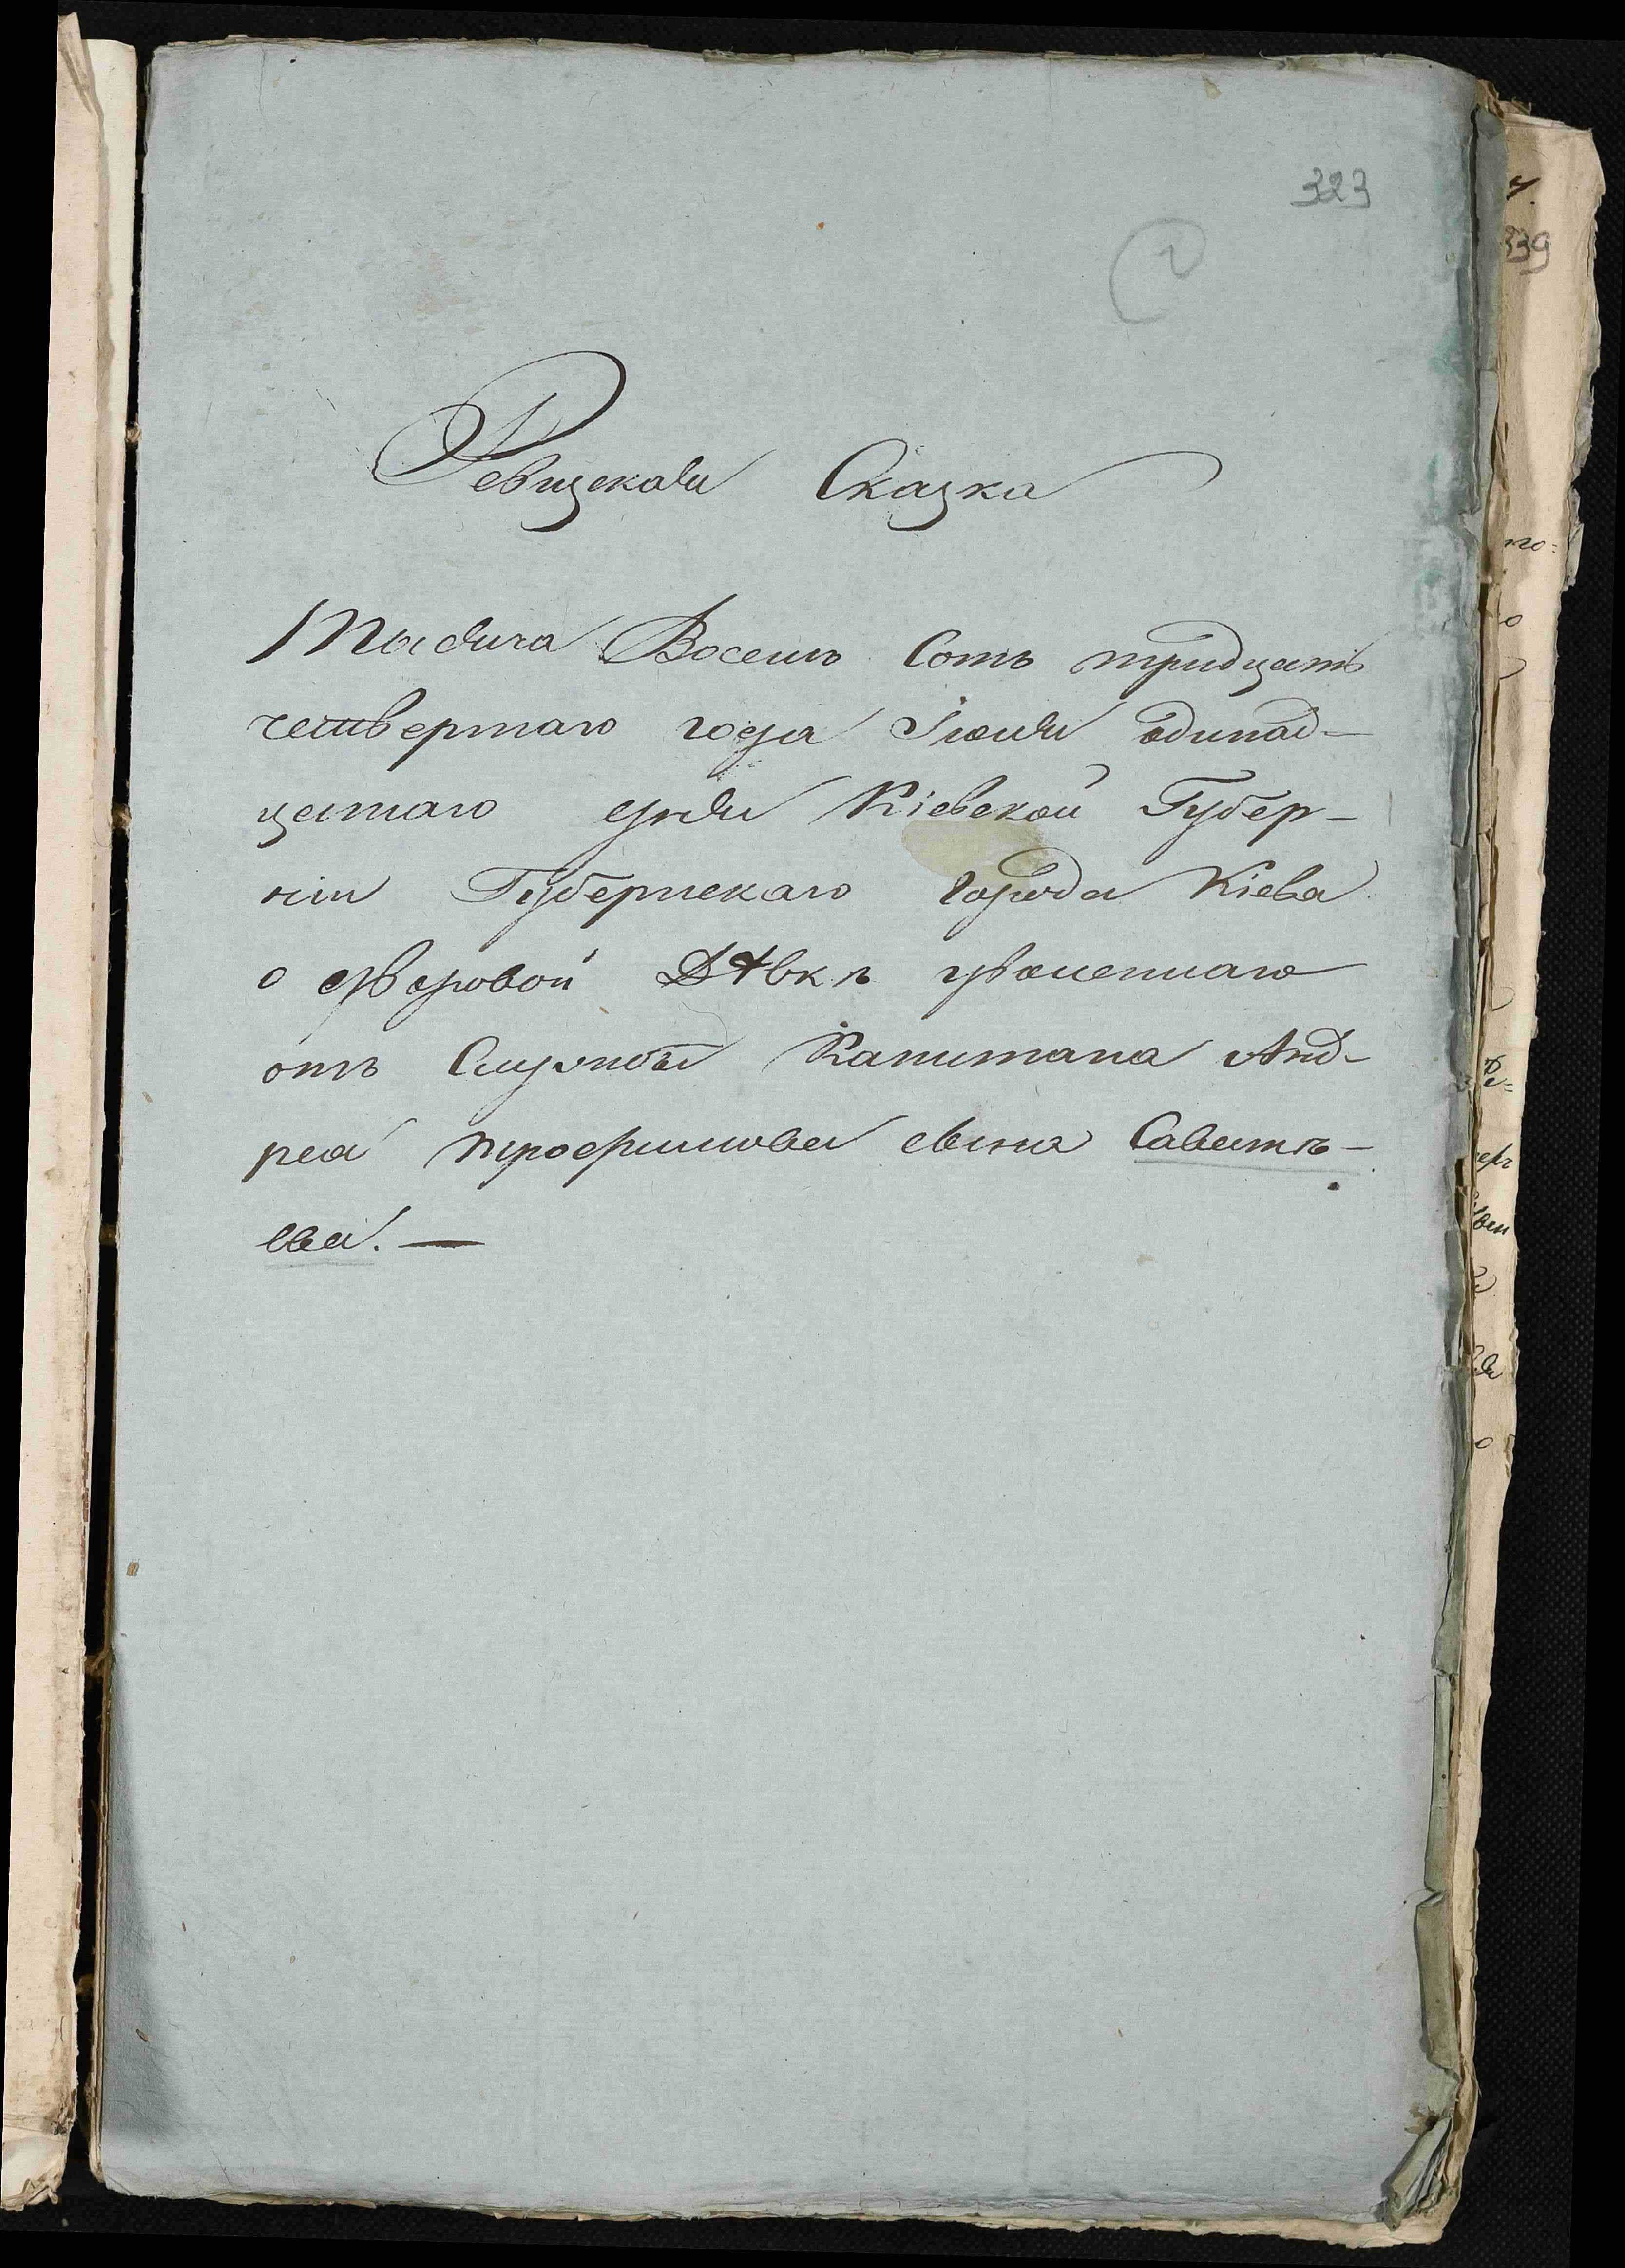 323
2
Ревизская Сказка
Тысяча Восемь Сотъ тридцать
четвертаго года Іюля одинад-
цатаго дня Кіевской Губер-
ніи Губернскаго Города Кіева
о дворовой Дѣвкѣ уволеннаго
отъ Службы Капитана Анд-
рея трофимова сына Саватѣ-
ева.
339